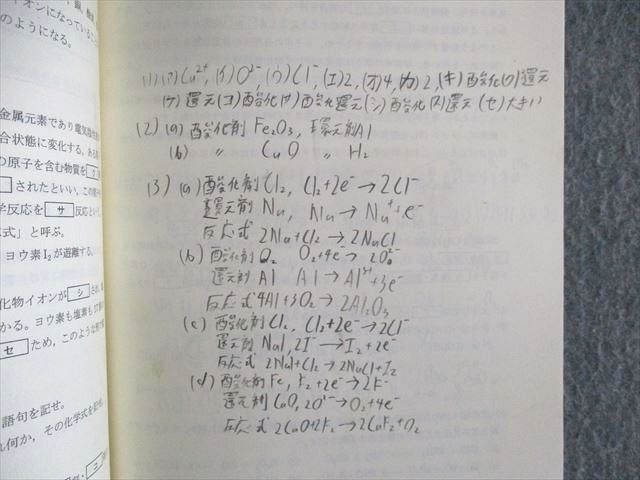 イオンになっているこ
のようになる。
金属元素であり電気陰性度
合状態に変化する。ある
の原子を含む物質を ク
されたといい、この原子
学反応を サ 反応とい
式」と呼ぶ。
ヨウ素I₂が遊離する。
化物イオンが シ され、
かる。ヨウ素も塩素も17族
セ ため、このような
語句を記せ。
れ何か、その化学式を
(1)(ア)Cu²⁺, (イ)O²⁻, (ウ)Cl⁻, (エ)2, (オ)4, (カ)2, (キ)酸化(ク)還元
(ケ)還元(コ)酸化(サ)酸化還元(シ)酸化(ス)還元(セ)大きい
(2) (a) 酸化剤 Fe₂O₃, 還元剤Al
(b) 〃 CuO 〃 H₂
(3) (a) 酸化剤 Cl₂, Cl₂+2e⁻→2Cl⁻
還元剤 Na, Na→Na⁺+e⁻
反応式 2Na+Cl₂→2NaCl
(b) 酸化剤 O₂ O₂+4e⁻→2O²⁻
還元剤 Al Al→Al³⁺+3e⁻
反応式 4Al+3O₂→2Al₂O₃
(c) 酸化剤 Cl₂, Cl₂+2e⁻→2Cl⁻
還元剤 NaI, 2I⁻→I₂+2e⁻
反応式 2NaI+Cl₂→2NaCl+I₂
(d) 酸化剤 F₂, F₂+2e⁻→2F⁻
還元剤 CaO, 2O²⁻→O₂+4e⁻
反応式 2CaO+2F₂→2CaF₂+O₂